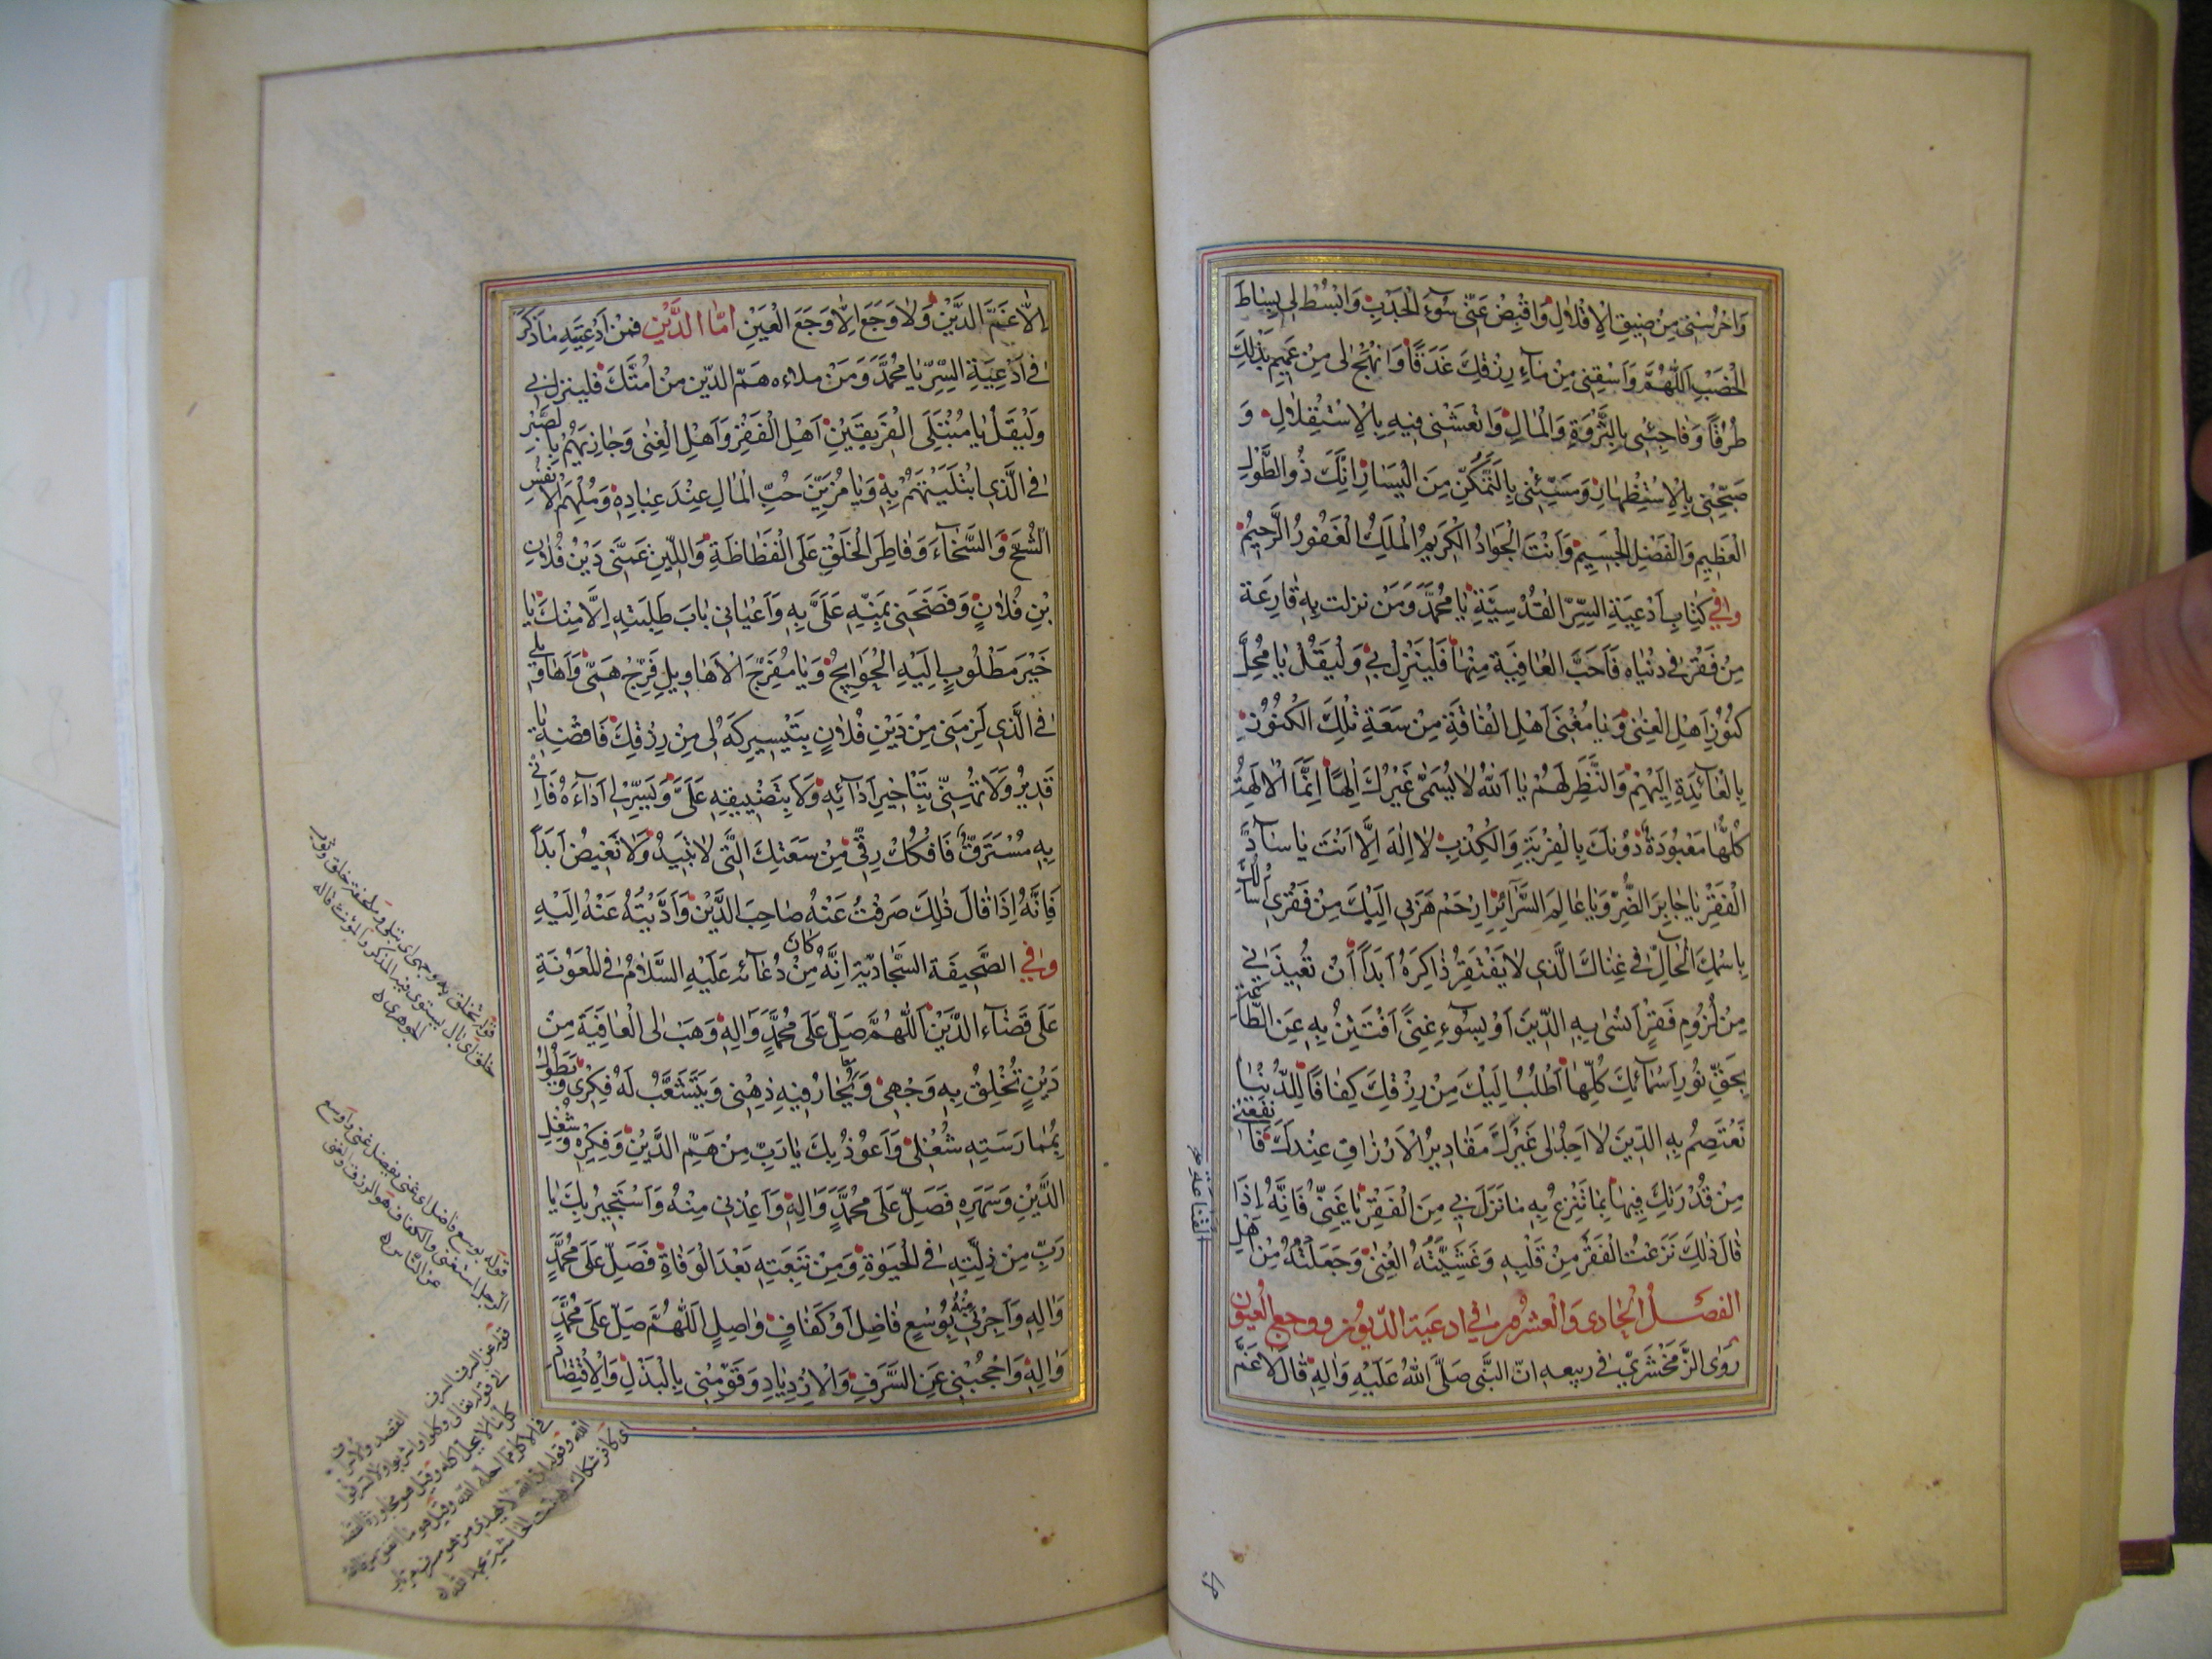 وَاحْرُسْنِي مِنْ ضِيقِ الْاِقْلَالِ وَاقْبِضْ عَنِّي سُوٓءَ الْجَدْبِ وَابْسُطْ لِي بِسَاطَ
الْخِصْبِ اَللّٰهُمَّ وَاسْقِنِي مِنْ مَآءِ رِزْقِكَ غَدَقًا وَانْهَجْ لِي مِنْ عَمِيمِ بَذْلِكَ
طُرُقًا وَفَاجِئْنِي بِالثَّرْوَةِ وَالْمَالِ وَانْعَشْنِي فِيهِ بِالْاِسْتِقْلَالِ وَ
صَبِّحْنِي بِالْاِسْتِظْهَارِ وَمَسِّنِي بِالتَّمَكُّنِ مِنَ الْيَسَارِ اِنَّكَ ذُو الطَّوْلِ
الْعَظِيمِ وَالْفَضْلِ الْجَسِيمِ وَاَنْتَ الْجَوَادُ الْكَرِيمُ الْمَلِكُ الْغَفُورُ الرَّحِيمُ
وفي كِتَابِ اَدْعِيَةِ السِّرِّ الْقُدْسِيَّةِ يَا مُحَمَّدُ وَمَنْ نزلت بِهِ قَارِعَة
مِنْ فَقْرٍ فِي دُنْيَاهُ فَاَحَبَّ الْعَافِيَة مِنْهَا فَلْيَنْزِلْ بِي وَلْيَقُلْ يَا مُحِلَّ
كُنُوزِ اَهْلِ الْغِنَى وَيَا مُغْنِيَ اَهْلِ الْفَاقَةِ مِنْ سَعَةِ تِلْكَ الْكُنُوزِ
بِالْعَآئِدَةِ اِلَيْهِمْ وَالنَّظَرِ لَهُمْ يَا اَللهُ لَا يُسَمَّى غَيْرُكَ اِلٰهًا اِنَّمَا الْاٰلِهَةُ
كُلُّهَا مَعْبُودَةٌ دُونَكَ بِالْفِرْيَةِ وَالْكِذْبِ لَا اِلٰهَ اِلَّا اَنْتَ يَا سَآدَّ
الْفَقْرِ يَا جَابِرَ الضُّرِّ وَيَا عَالِمَ السَّرَآئِرِ اِرْحَمْ هَرَبِي اِلَيْكَ مِنْ فَقْرِي اَسْأَلُكَ
بِاسْمِكَ الْحَالِّ فِي غِنَاكَ الَّذِي لَا يَفْتَقِرُ ذَاكِرَهُ اَبَدًا اَنْ تُعِيذَنِي
مِنْ لُزُومِ فَقْرٍ اَنْسَى بِهِ الدِّينَ اَوْ بِسُوٓءِ غِنًى اَفْتَتِنُ بِهِ عَنِ الطَّاعَةِ
بِحَقِّ نُورِ اَسْمَآئِكَ كُلِّهَا اَطْلُبُ اِلَيْكَ مِنْ رِزْقِكَ كَفَافًا لِلدُّنْيَا
نَعْتَصِمُ بِهِ الدِّينَ لَا اَجِدُ لِي غَيْرَكَ مَقَادِيرُ الْاَرْزَاقِ عِنْدَكَ فَانْفَعْنِي
مِنْ قُدْرَتِكَ فِيهَا بِمَا تَنْزِعُ بِهِ مَا نَزَلَ بِي مِنَ الْفَقْرِ يَا غَنِيُّ فَاِنَّهُ اِذَا
قَالَ ذٰلِكَ نَزَعْتُ الْفَقْرَ مِنْ قَلْبِهِ وَغَشَّيْتُهُ الْغِنَى وَجَعَلْتُهُ مِنْ اَهْلِ
القناعة
الفصَـــل الْحَادِي وَالْعِشْرُونَ فِي ادعية الدّيون ووجع العيون
رَوَى الزَّمَخْشَرِيُّ فِي ربيعهِ انّ النَّبِي صَلَّى اللهُ عَلَيْهِ وَاٰلِهِ قَالَ لَا غَمَّ
اِلَّا غَمَّ الدَّيْنِ وَلَا وَجَعَ اِلَّا وَجَعَ الْعَيْنِ امّا الدَّيْن فمن اَدْعِيَتِهِ مَا ذَكَرَ
فِي اَدْعِيَةِ السِّرِّ يَا مُحَمَّدُ وَمَنْ ملاءه هَمّ الدّين مِنْ اُمَّتِكَ فلينزل بي
وَلْيَقُلْ يَا مُبْتَلِيَ الْفَرِيقَيْنِ اَهْلَ الْفَقْرِ وَاَهْلَ الْغِنَى وَجَازِيَهُمْ بِالصَّبْرِ
فِي الَّذِي ابْتَلَيْتَهُمْ بِهِ وَيَا مُزَيِّنَ حُبِّ الْمَالِ عِنْدَ عِبَادِهِ وَمُلْهِمَ الْاَنْفُسِ
الشُّحَّ وَالسَّخَآءَ وَفَاطِرَ الْخَلْقِ عَلَى الْفَظَاظَةِ وَاللِّينِ غَمَّنِي دَيْنُ فُلَانِ
بْنِ فُلَانٍ وَفَضَحَنِي بِمَنِّهِ عَلَيَّ بِهِ وَاَعْيَانِي بَابَ طَلِبَتِهِ اِلَّا مِنْكَ يَا
خَيْرَ مَطْلُوبٍ اِلَيْهِ الْحَوَآئِجُ وَيَا مُفَرِّجَ الْاَهَاوِيلِ فَرِّجْ هَمِّي وَاَهَاوِيلِي
فِي الَّذِي لَزِمَنِي مِنْ دَيْنِ فُلَانٍ بِتَيْسِيرِكَهُ لِي مِنْ رِزْقِكَ فَاقْضِهِ يَا
قَدِيرُ وَلَا تُهِنِّي بِتَاْخِيرِ اَدَآئِهِ وَلَا بِتَضْيِيقِهِ عَلَيَّ وَيَسِّرْ لِي اَدَآءَهُ فَاِنِّي
بِهِ مُسْتَرَقٌّ فَافْكُكْ رِقِّي مِنْ سَعَتِكَ الَّتِي لَا تَبِيدُ وَلَا تَغِيضُ اَبَدًا
فَاِنَّهُ اِذَا قَالَ ذٰلِكَ صَرَفْتُ عَنْهُ صَاحِبَ الدَّيْنِ وَاَدَّيْتُهُ عَنْهُ اِلَيْهِ
وفي الصَّحِيفَة السَّجَّادِيّة اِنَّهُ كان مِنْ دُعَآئِهِ عَلَيْهِ السَّلَامُ فِي الْمَعُونَةِ
عَلَى قَضَآءِ الدَّيْنِ اَللّٰهُمَّ صَلِّ عَلَى مُحَمَّدٍ وَاٰلِهِ وَهَبْ لِي الْعَافِيَةَ مِنْ
دَيْنٍ تُخْلِقُ بِهِ وَجْهِي وَيَحَارُ فِيهِ ذِهْنِي وَيَتَشَعَّبُ لَهُ فِكْرِي وَيَطُولُ
بِمُمَارَسَتِهِ شُغْلِي وَاَعُوذُ بِكَ يَا رَبِّ مِنْ هَمِّ الدَّيْنِ وَفِكْرِهِ وَشُغْلِ
الدَّيْنِ وَسَهَرِهِ فَصَلِّ عَلَى مُحَمَّدٍ وَاٰلِهِ وَاَعِذْنِي مِنْهُ وَاَسْتَجِيرُ بِكَ يَا
رَبِّ مِنْ ذِلَّتِهِ فِي الْحَيٰوةِ وَمِنْ تَبِعَتِهِ بَعْدَ الْوَفَاةِ فَصَلِّ عَلَى مُحَمَّدٍ
وَاٰلِهِ وَاَجِرْنِي مِنْهُ بِوُسْعٍ فَاضِلٍ اَوْ كَفَافٍ وَاصِلٍ اَللّٰهُمَّ صَلِّ عَلَى مُحَمَّدٍ
وَاٰلِهِ وَاحْجُبْنِي عَنِ السَّرَفِ وَالْاِزْدِيَادِ وَقَوِّمْنِي بِالْبَذْلِ وَالْاِقْتِصَادِ
قوله تخلق به وجهي اي تبلي وملحفة خلق وثوب
خلق اي بال يستوي فيه المذكر والمؤنث قاله
الجوهري
قوله بوسع فاضل اي غنى يفضل عني واوسع
الرجل استغنى والكفاف هو الرزق والغنى
عن الناس